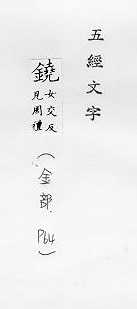 五經文字
鐃
女交反
見周禮
(金部
P64)